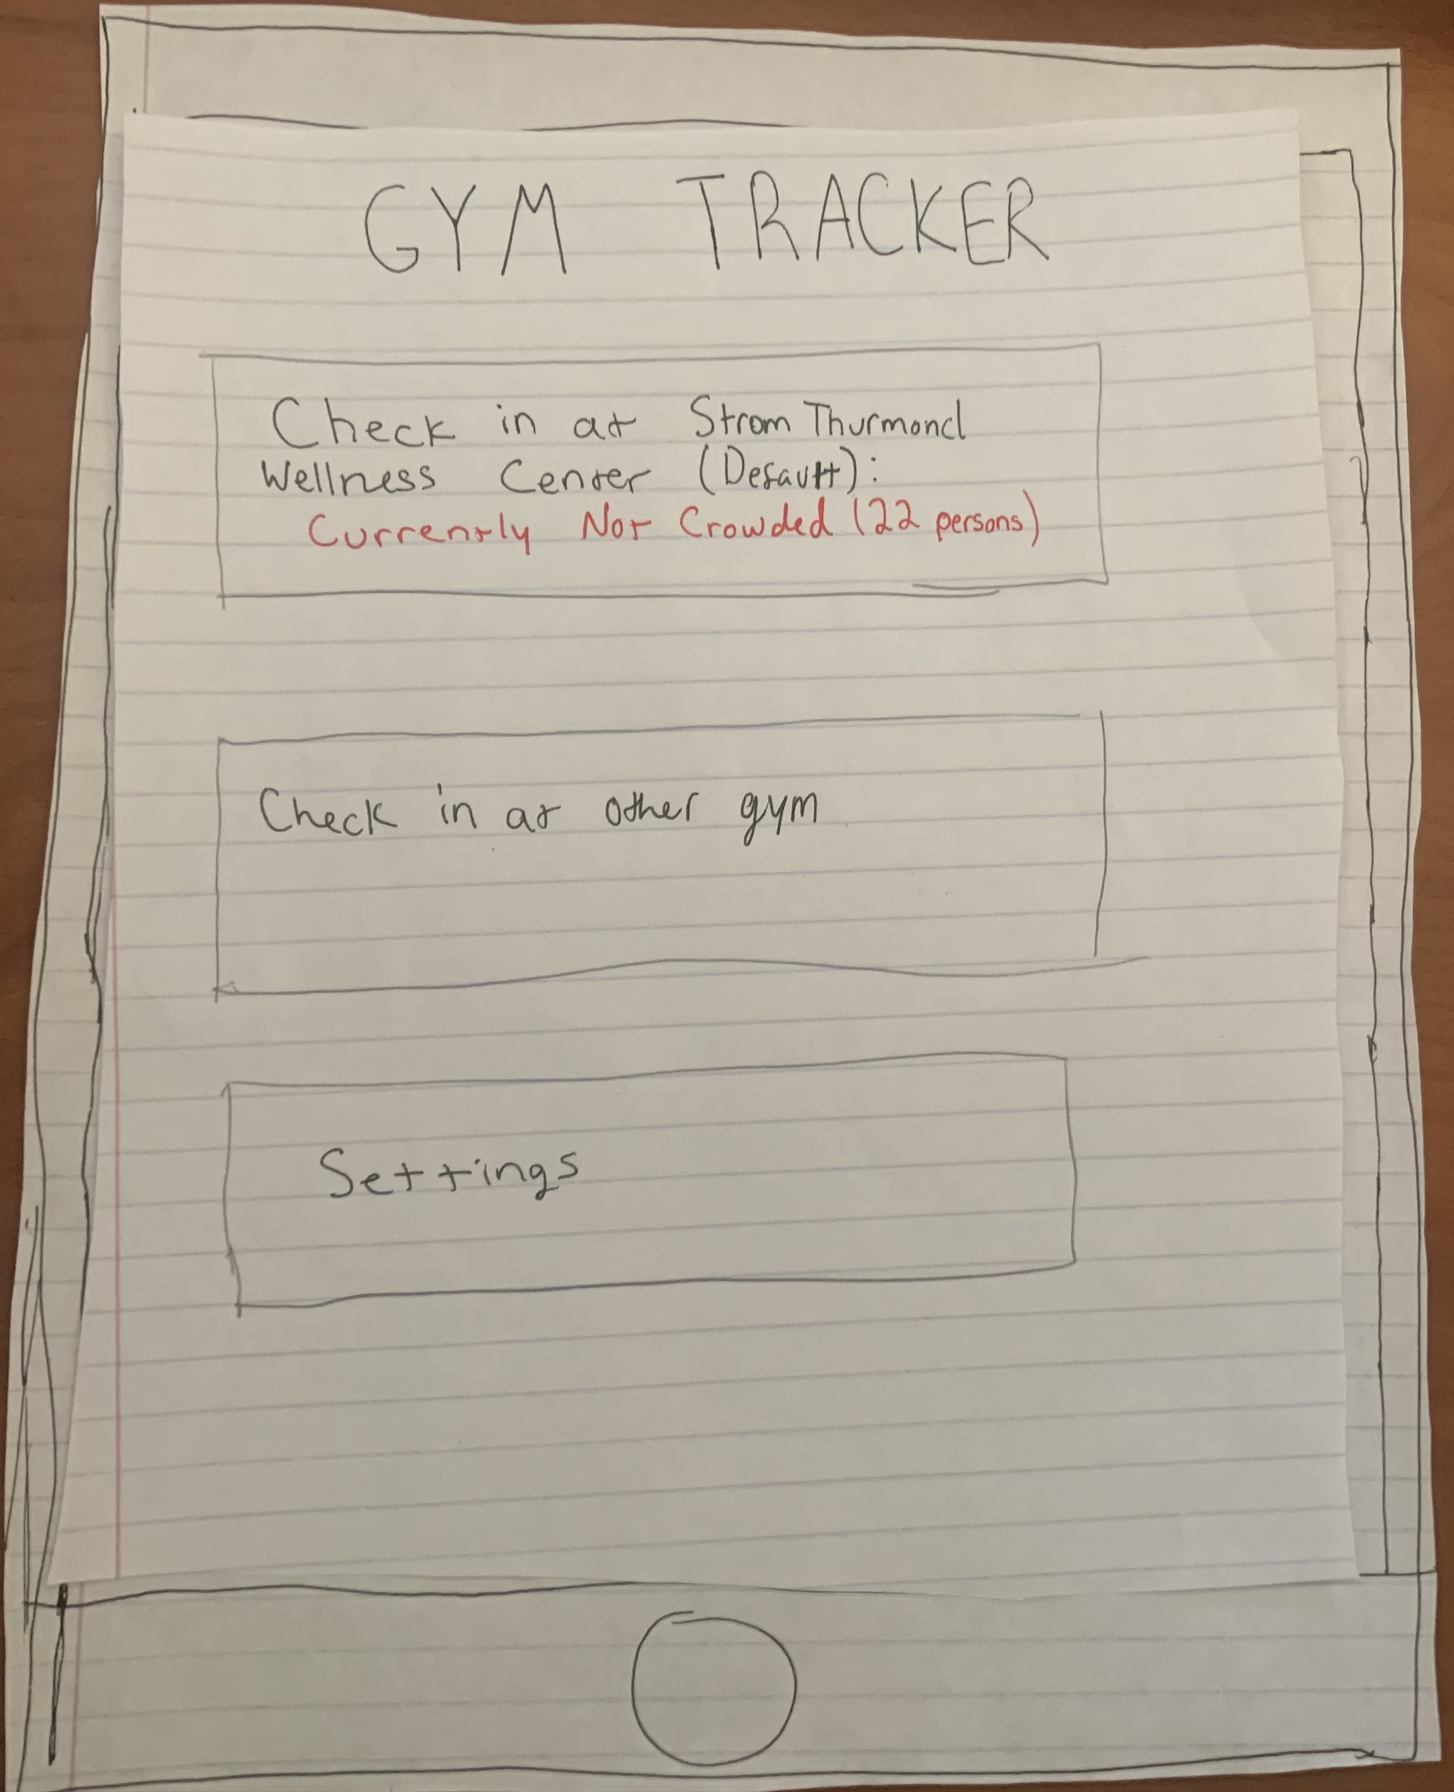 GYM TRACKER
Check in at Strom Thurmond
Wellness Center (Default):
Currently Not Crowded (22 persons)
Check in at other gym
Settings